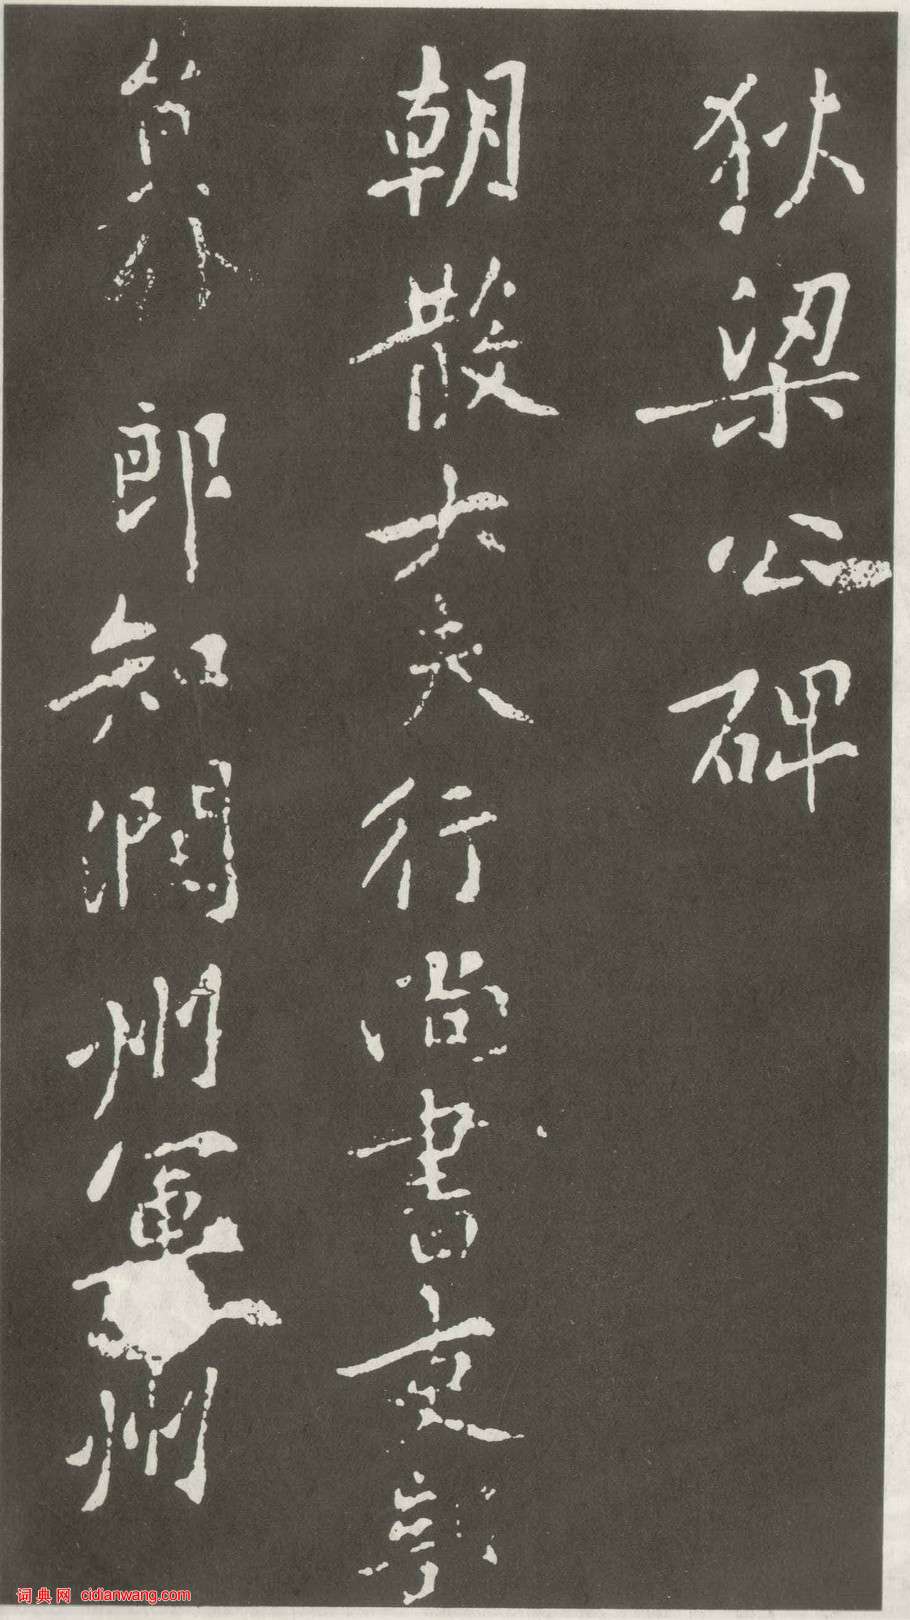 狄梁公碑
朝散大夫行尚書吏部
員外郎知潤州軍州
词典网 cidianwang.com